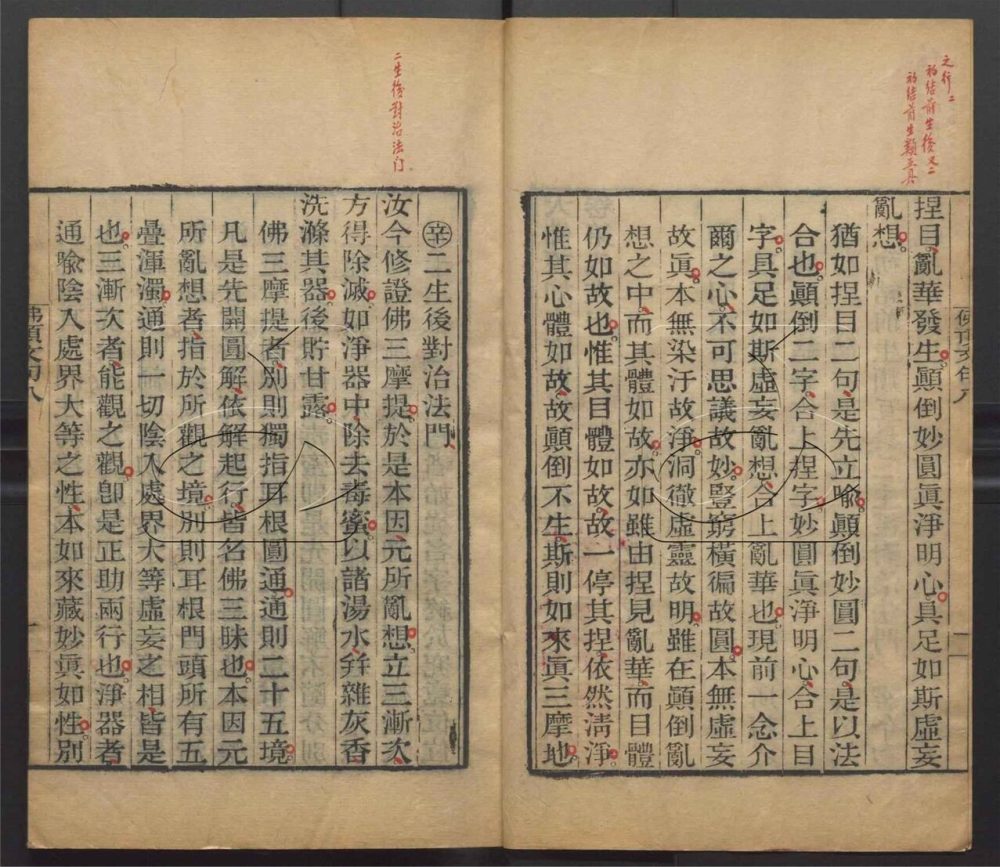 之行二
初結前生後又二
初結前生顛立具
捏目亂華發生。顛倒妙圓眞淨明心。具足如斯虛妄
亂想。
猶如捏目二句、是先立喩。顛倒妙圓二句、是以法
合也。顛倒二字、合上捏字。妙圓眞淨明心、合上目
字。具足如斯虛妄亂想、合上亂華也。現前一念介
爾之心、不可思議故妙。豎窮橫徧故圓、本無虛妄
故眞。本無染汙故淨。洞徹虛靈故明。雖在顛倒亂
想之中、而其體如故。亦如雖由捏見亂華、而目體
仍如故也。惟其目體如故、故一停其捏、依然淸淨。
惟其心體如故、故顛倒不生、斯則如來眞三摩地。
二生後對治法门
㊛二生後對治法門、
汝今修證佛三摩提。於是本因、元所亂想。立三漸次、
方得除滅。如淨器中、除去毒蜜。以諸湯水、幷雜灰香
洗滌其器。後貯甘露。
佛三摩提者、別則獨指耳根圓通。通則二十五境。
凡是先開圓解、依解起行、皆名佛三昧也。本因元
所亂想者、指於所觀之境。別則耳根門頭所有五
疊渾濁。通則一切陰入處界大等虛妄之相、皆是
也。三漸次者、能觀之觀。卽是正助兩行也。淨器者
通喩陰入處界大等之性、本如來藏妙眞如性。別
佛頂文句八